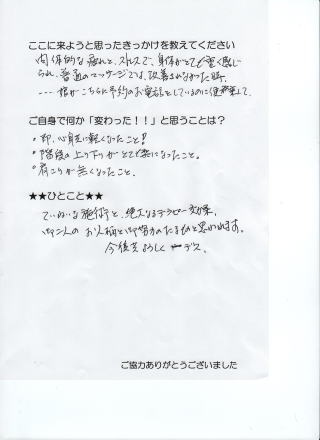 ここに来ようと思ったきっかけを教えてください
肉体的な疲れと、ストレスで、身体がとても重く感じ
られ、普通のマッサージでは、改善されなかった時、
‥‥ がこちらに予約のお電話をしているのに便乗して。
ご自身で何か「変わった！！」と思うことは？
・即、心身共に軽くなったこと！
・階段の上り下りがとても楽になったこと。
・肩こりが無くなったこと。
★★ひとこと★★
ていねいな施術と、絶大なるテラピー効果、
御二人のお人柄と御努力のたまものと思われます。
今後共よろしくデス。
ご協力ありがとうございました